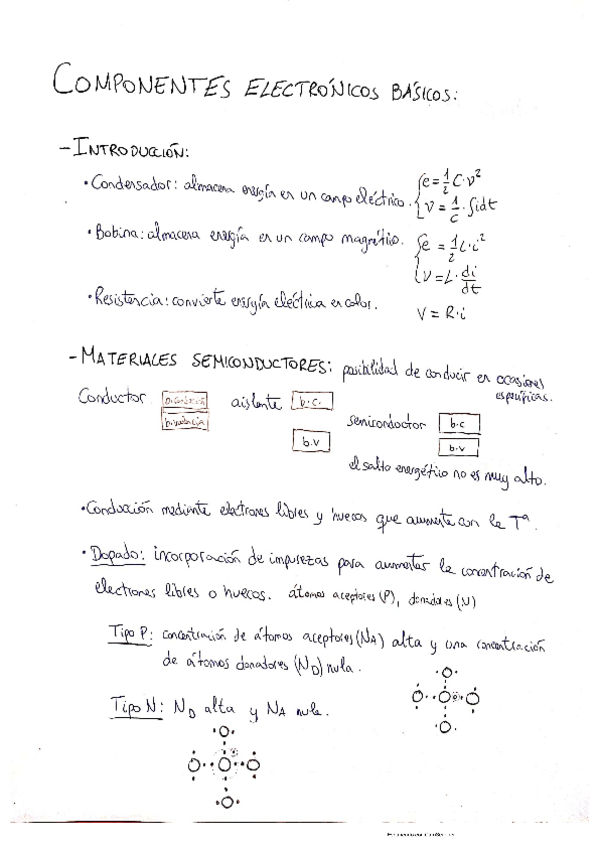 COMPONENTES ELECTRÓNICOS BÁSICOS:
- INTRODUCCIÓN:
• Condensador: almacena energía en un campo eléctrico. e = 1/2 C·v²
v = 1/C · ∫idt
• Bobina: almacena energía en un campo magnético. e = 1/2 L·i²
v = L · di/dt
• Resistencia: convierte energía eléctrica en calor. V = R·i
- MATERIALES SEMICONDUCTORES: posibilidad de conducir en ocasiones
específicas.
Conductor b.conducción aislante b.c.
b.valencia
semiconductor b.c
b.v b.v
el salto energético no es muy alto.
• Conducción mediante electrones libres y huecos que aumenta con la Tª.
• Dopado: incorporación de impurezas para aumentar la concentración de
electrones libres o huecos. átomos aceptores (P), donadores (N)
Tipo P: concentración de átomos aceptores (NA) alta y una concentración
de átomos donadores (ND) nula.
Tipo N: ND alta y NA nula.